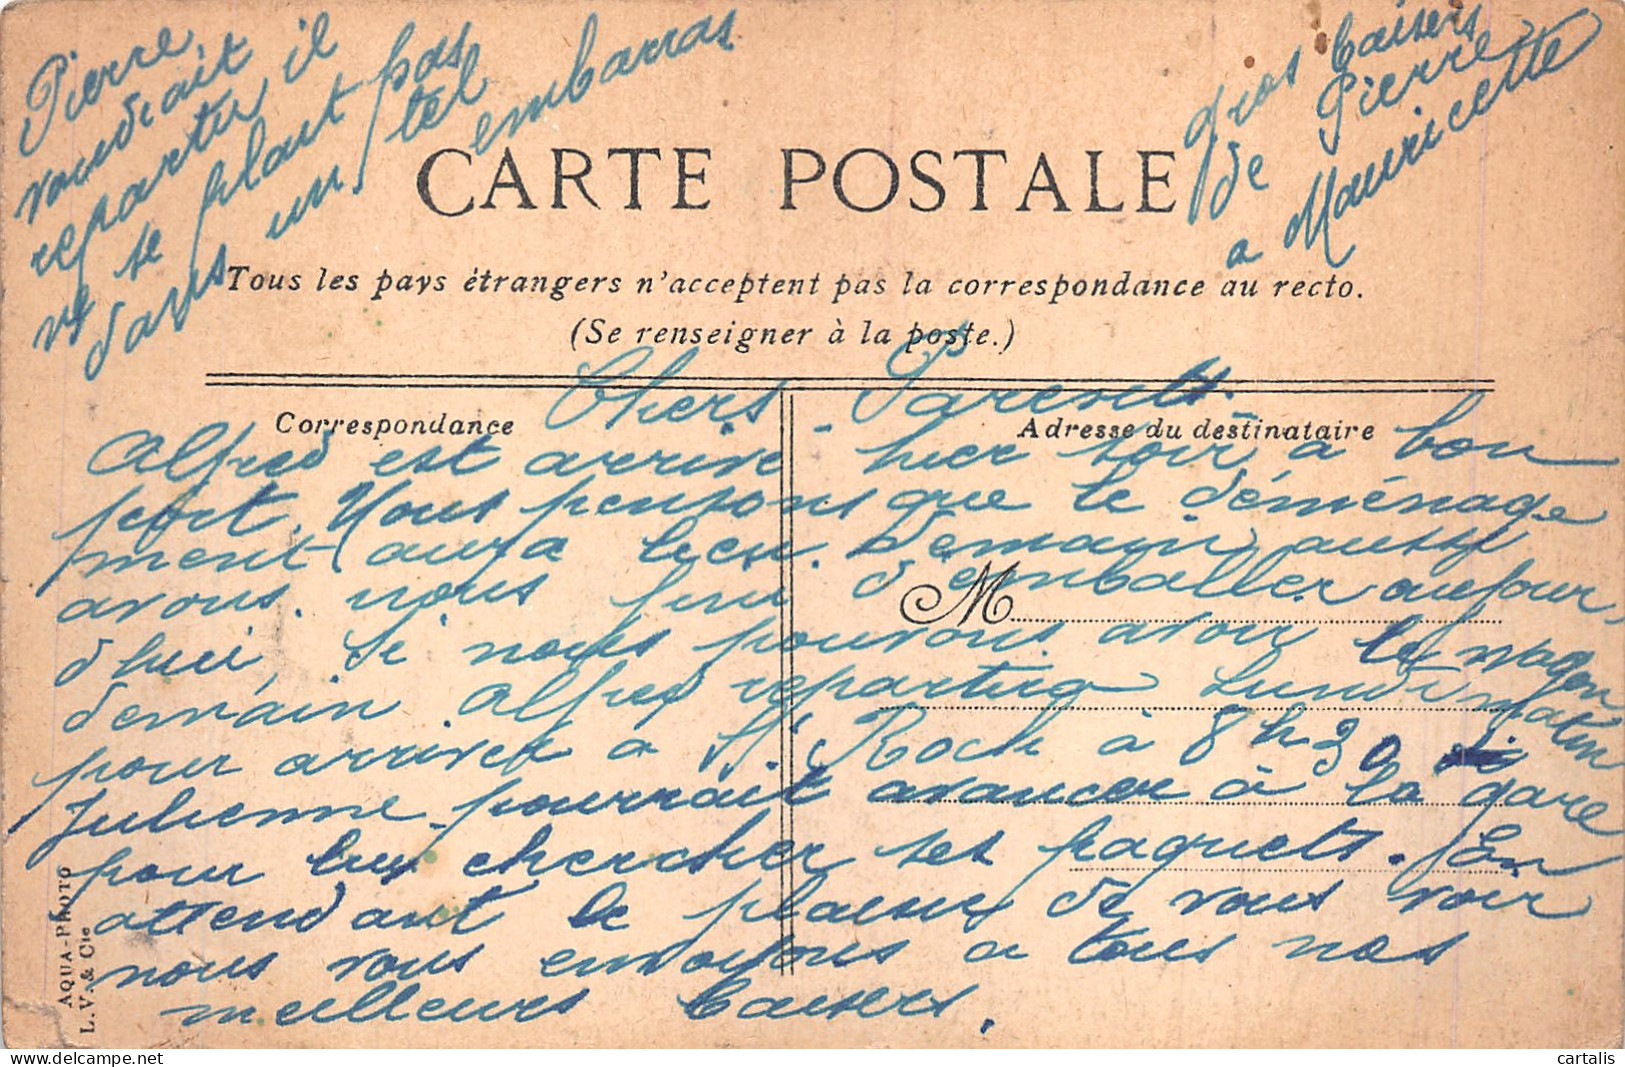 Pierre
voudrait
repartir, il
ne se plaut pas
dans un tel
embarras
gros baisers
de Pierre
a Mauricette
CARTE POSTALE
Tous les pays étrangers n'acceptent pas la correspondance au recto.
(Se renseigner à la poste.)
Chers Parents.
Correspondance
Adresse du destinataire
Alfred est arrivé hier soir à bon
port. Nous pensons que le déménage
ment aura lieu demain, aussi
avons nous fini d'emballer aujour,
M
d'hui, Si nous pouvons avoir le wagon
demain Alfred repartira Lundi matin
pour arriver à St Roch à 8h30
Julienne pourrait avancer à la gare
pour lui chercher ses paquets. En
attendant le plaisir de vous voir
nous vous envoyons a tous nos
meilleurs baisers.
AQUA-PHOTO
L.V. & Cie
cartalis